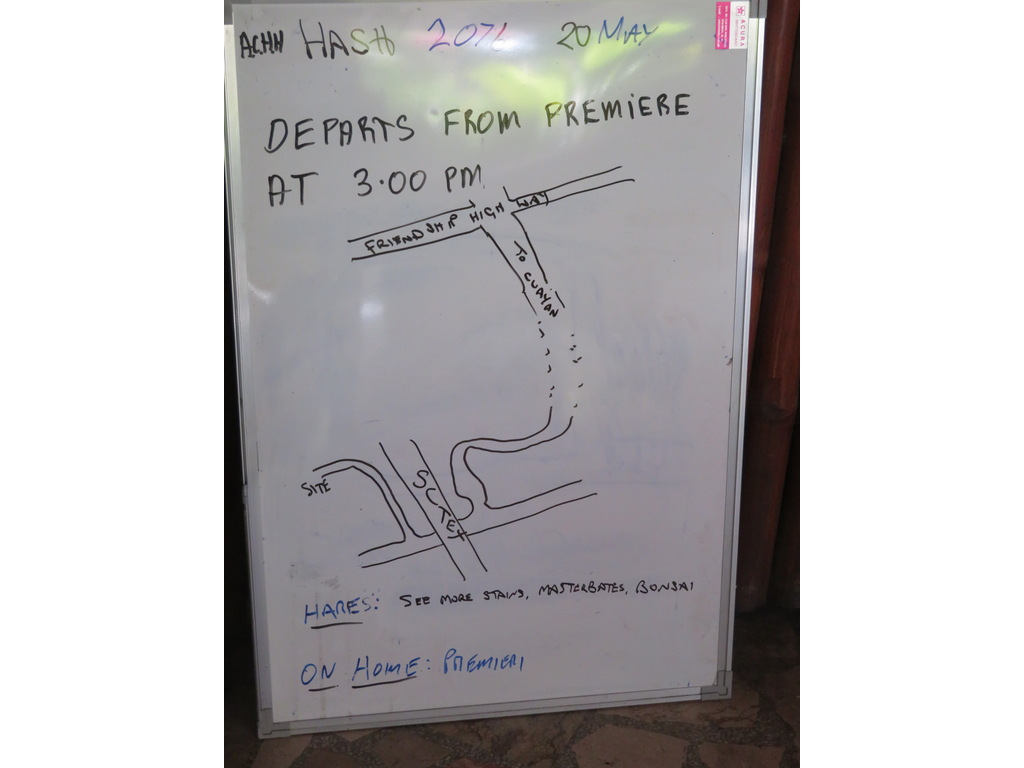 ACHN HASH 2071 20 MAY
DEPARTS FROM PREMIERE
AT 3.00 PM
FRIENDSHIP HIGH WAY
TO CUAYAN
SCTEX
SITE
HARES: SEE MORE STAINS, MASTERBATES, BONSAI
ON HOME: PREMIERE
ACURA